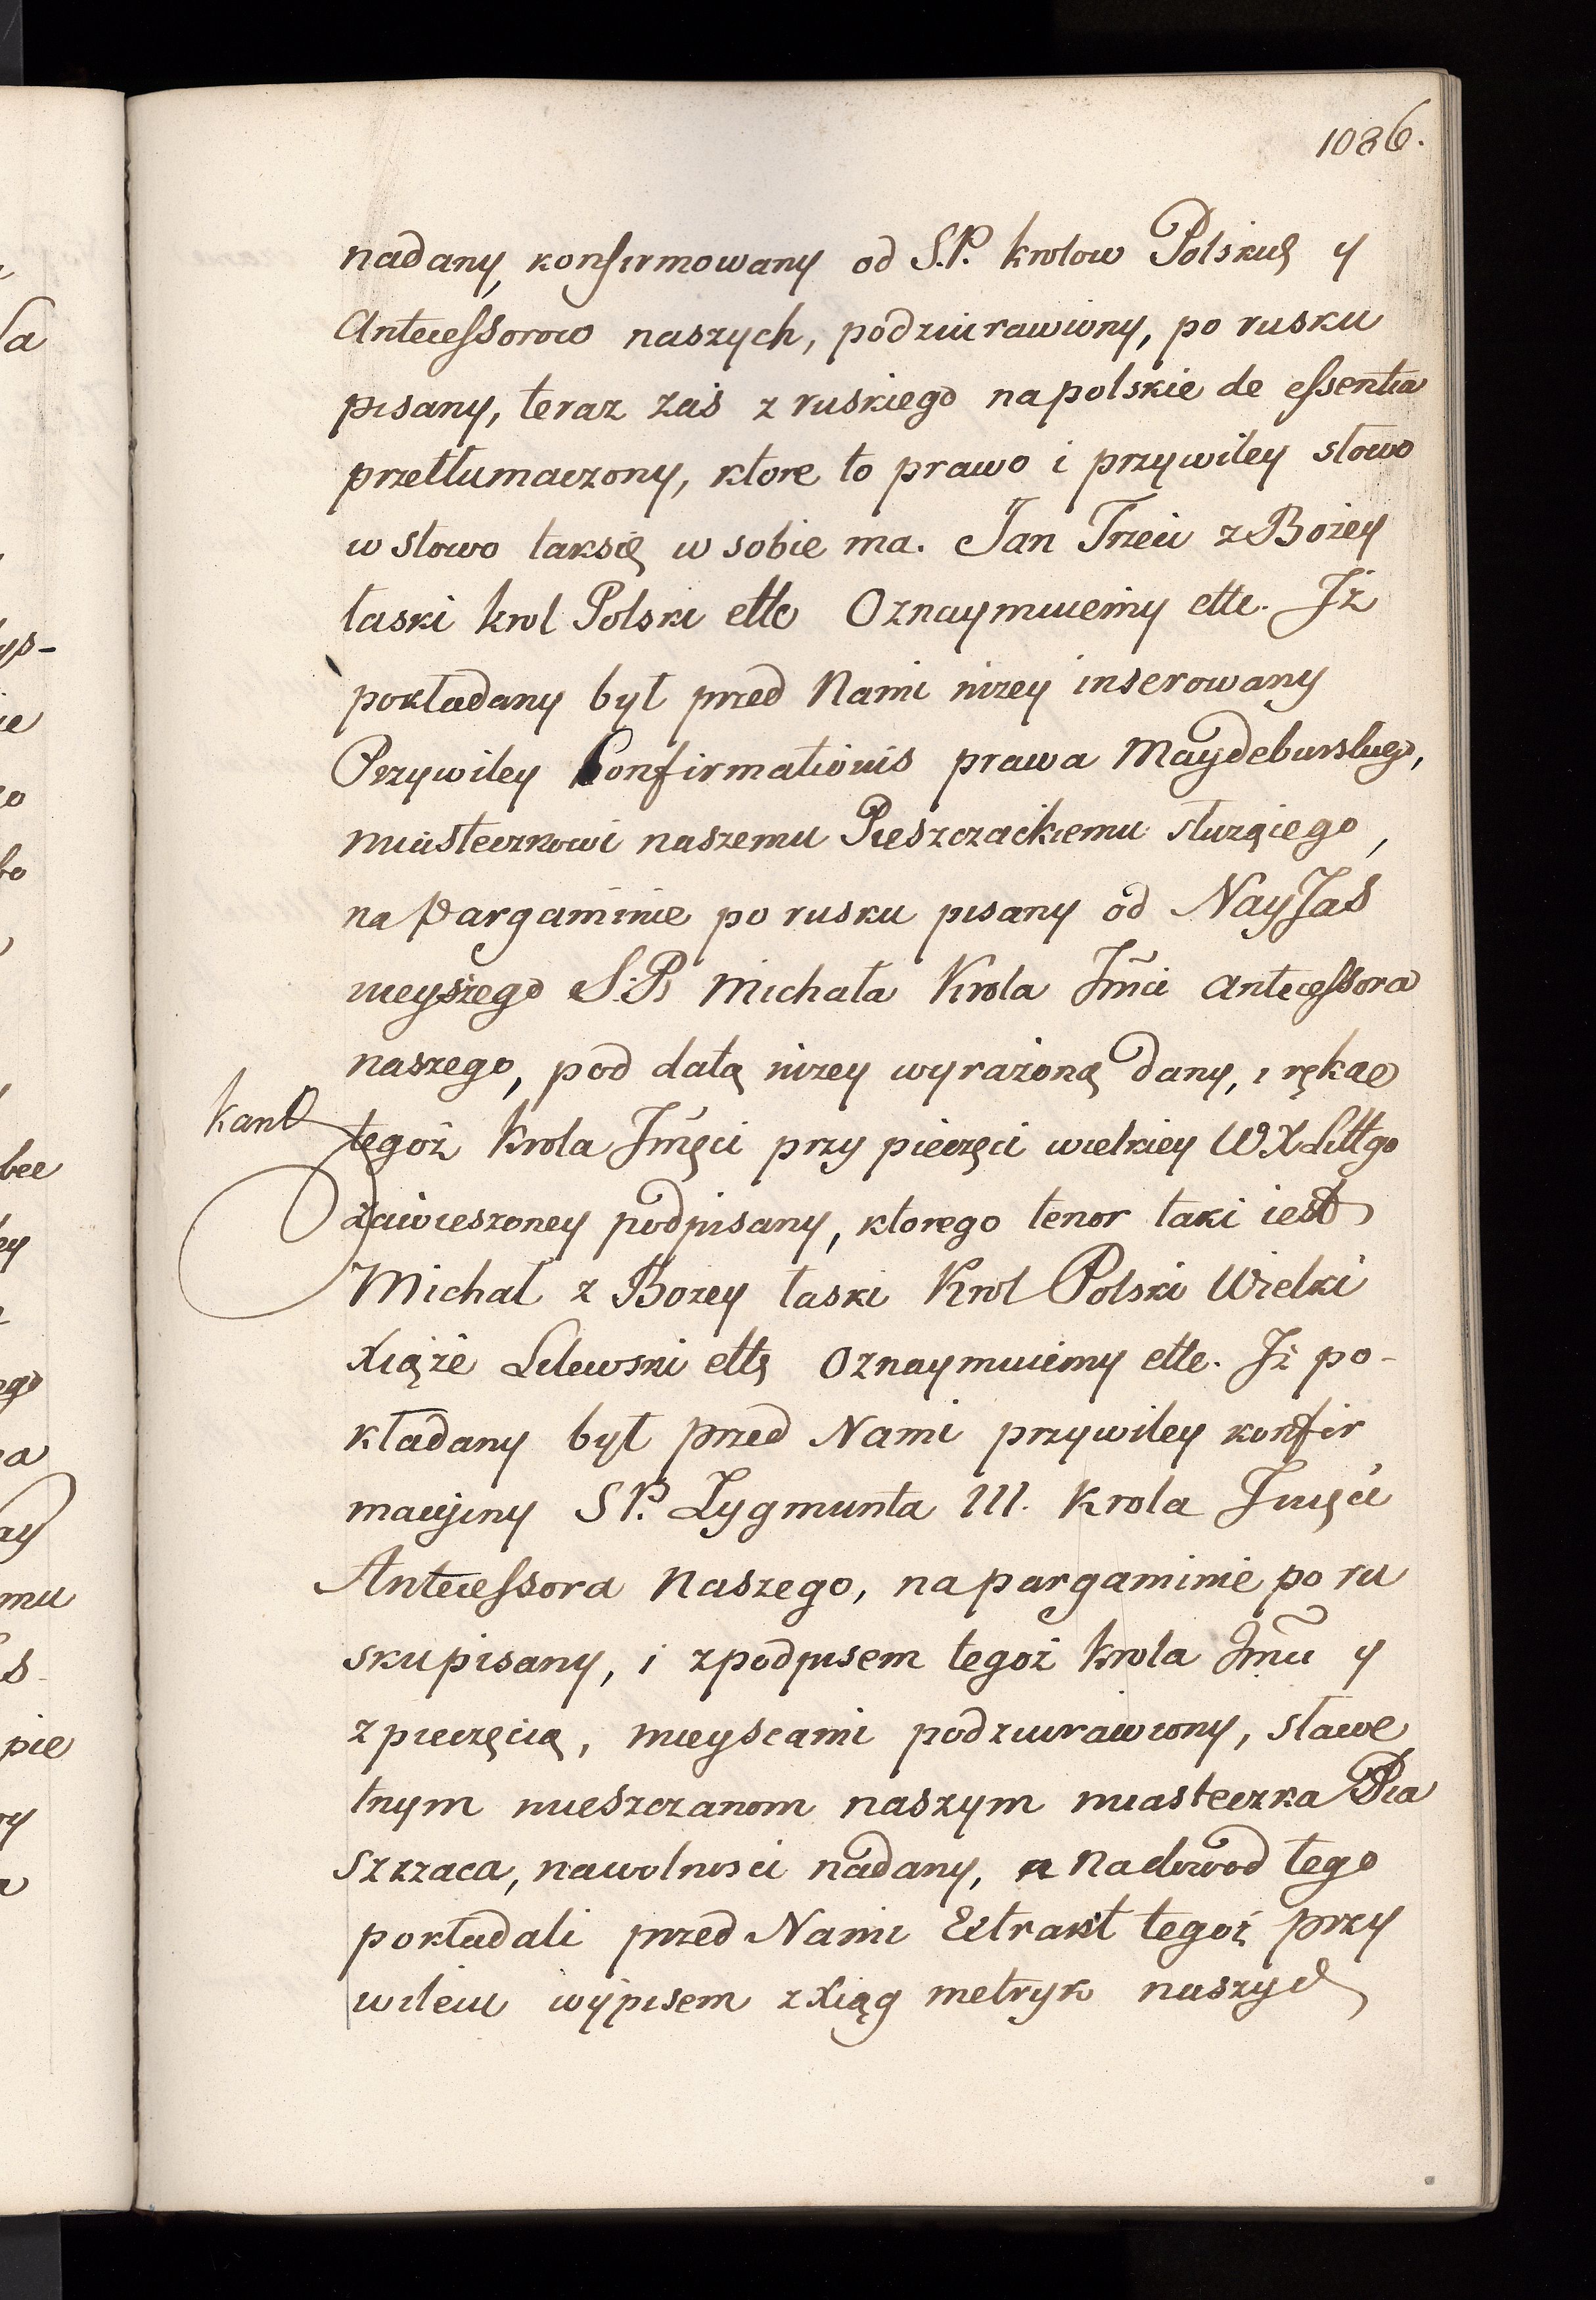 1086.
nadany, konfirmowany od S.P. krolow Polskich y
Antecessorow naszych, podziurawiony, po rusku
pisany, teraz zaś z ruskiego na polskie de essentia
przetłumaczony, ktore to prawo i przywiley słowo
w słowo tak się w sobie ma. Jan Trzeci z Bożey
łaski krol Polski ettc Oznaymuiemy ettc. Iż
pokładany był przed Nami niżey inserowany
Przywiley Confirmationis prawa Maydeburskiego,
miasteczkowi naszemu Pieszczackiemu służącego,
na pargaminie po rusku pisany od NayJaś
nieyszego S.P. Michała Krola Jmći Antecessora
naszego, pod datą niżey wyrażoną dany, i ręką
kanc
tegoż Krola Jmęci przy pieczęci wielkiey WXLittgo
zawieszoney podpisany, ktorego tenor taki iest
Michał z Bożey łaski Krol Polski Wielki
Xiąże Litewski ettc Oznaymuiemy ettc. Iż po-
kładany był przed Nami przywiley konfir
macyiny S P. Zygmunta III. Krola Jmęci
Antecessora Naszego, na pargaminie po ru
sku pisany, i z podpisem tegoż krola Jmći y
z pieczęcią, mieyscami podziurawiony, sławe
tnym mieszczanom naszym miasteczka Pia
szczaca, na wolności nadany, a na dowod tego
pokładali przed Nami Extrakt tegoż przy
wileiu wypisem z Xiąg metryk naszych